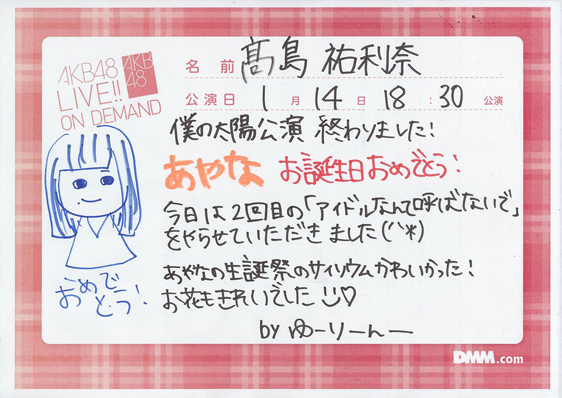 AKB48
LIVE!!
ON DEMAND
AKB
48
名前 髙島 祐利奈
公演日 1月14日 18:30公演
僕の太陽公演 終わりました!
あやな お誕生日おめでとう!
今日は2回目の「アイドルなんて呼ばないで」
をやらせていただきました(^^*)
あやなの生誕祭のサイリウムかわいかった!
お花もきれいでした ♡
by ゆーりーんー
おめで
とう!
DMM.com